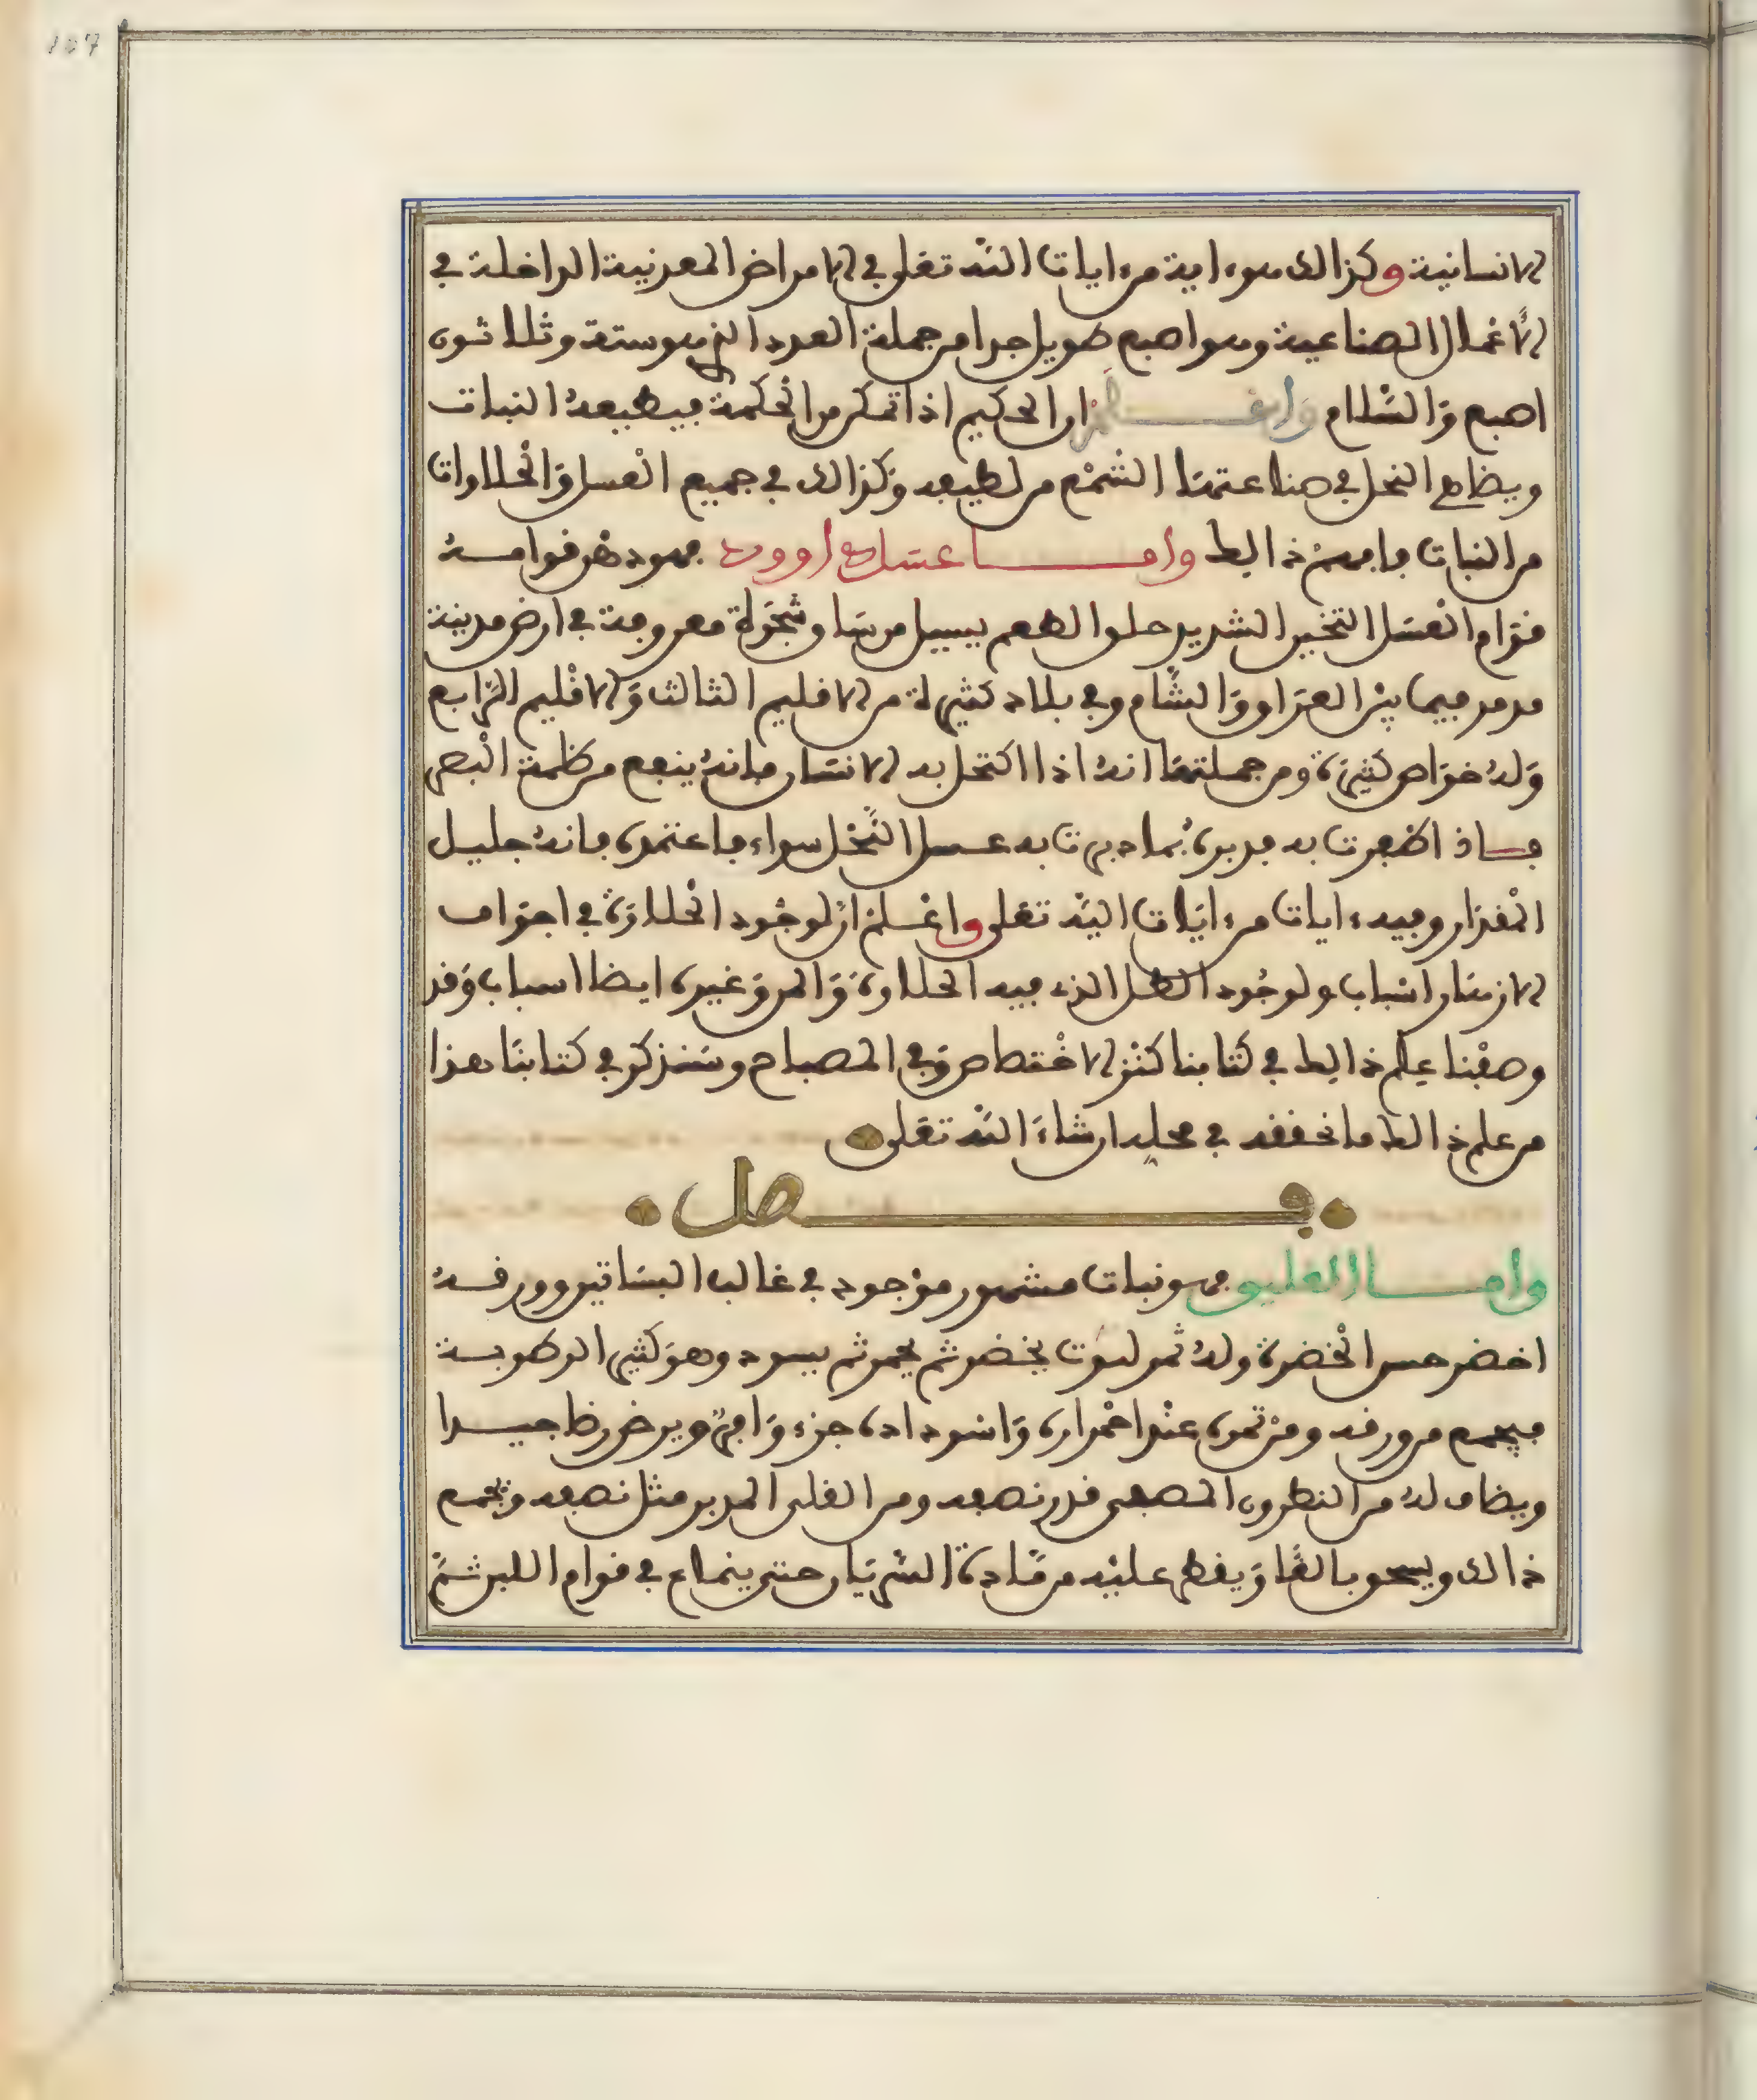 107
الانسانية وكذالك هوءاية من ءايات الله تعلى في الامراض المعدنية الداخلة في
الاعمال الصناعية وهو اصبع طويل جدا من جملة العدد الذي هو ستة وثلاثون
اصبع والسلام واعلم ان الحكيم اذا تمكن من الحكمة فبطبيعة النبات
ويضاهي النحل في صناعتها الشمع من لطيفه وكذالك في جميع العسل والحلاوات
من النبات فافهم ذالك واما عسل داوود فهو دهن قوامه
قوام العسل التخين الشديد حلو الطعم يسيل من ساق شجرة معروفة في ارض مدينة
تدمر فيما بين العراق والشام وفي بلاد كثيرة من الاقليم الثالث والاقليم الرابع
وله خواص كثيرة ومن جملتها انه اذا اكتحل به الانسان فانه ينفع من ظلمة البصر
فاذ اظفرت به فدبره بما دبرت به عسل النحل سواء فاعتمده فانه جليل
المقدار وفيه ءايات من ءايات الله تعلى واعلم ان لوجود الحلاوة في اجواف
الازهار اسباب ولوجود الطل الذي فيه الحلاوة والمر وغيره ايضا اسباب وقد
وصفنا علم ذالك في كتابنا كنز الاختصاص وفي المصباح وسنذكر في كتابنا هذا
من علم ذالك ما نحققه في محله ان شاء الله تعلى
فصل
واما العليق فهو نبات مشهور موجود في غالب البساتين وورقه
اخضر حسن الخضرة وله ثمر توت يخضر ثم يحمر ثم يسود وهو كثير الرطوبة
فيجمع من ورقه ومن ثمره عند احمراره واسوداده جزء وافر ويرض رضا جيدا
ويضاف له من النطرون المصعى قدر نصفه ومن القلى المدبر مثل نصفه ويجمع
ذالك ويسحق بالغا ويقطر عليه من مادة السريان حتى ينماع في قوام اللبن ثم